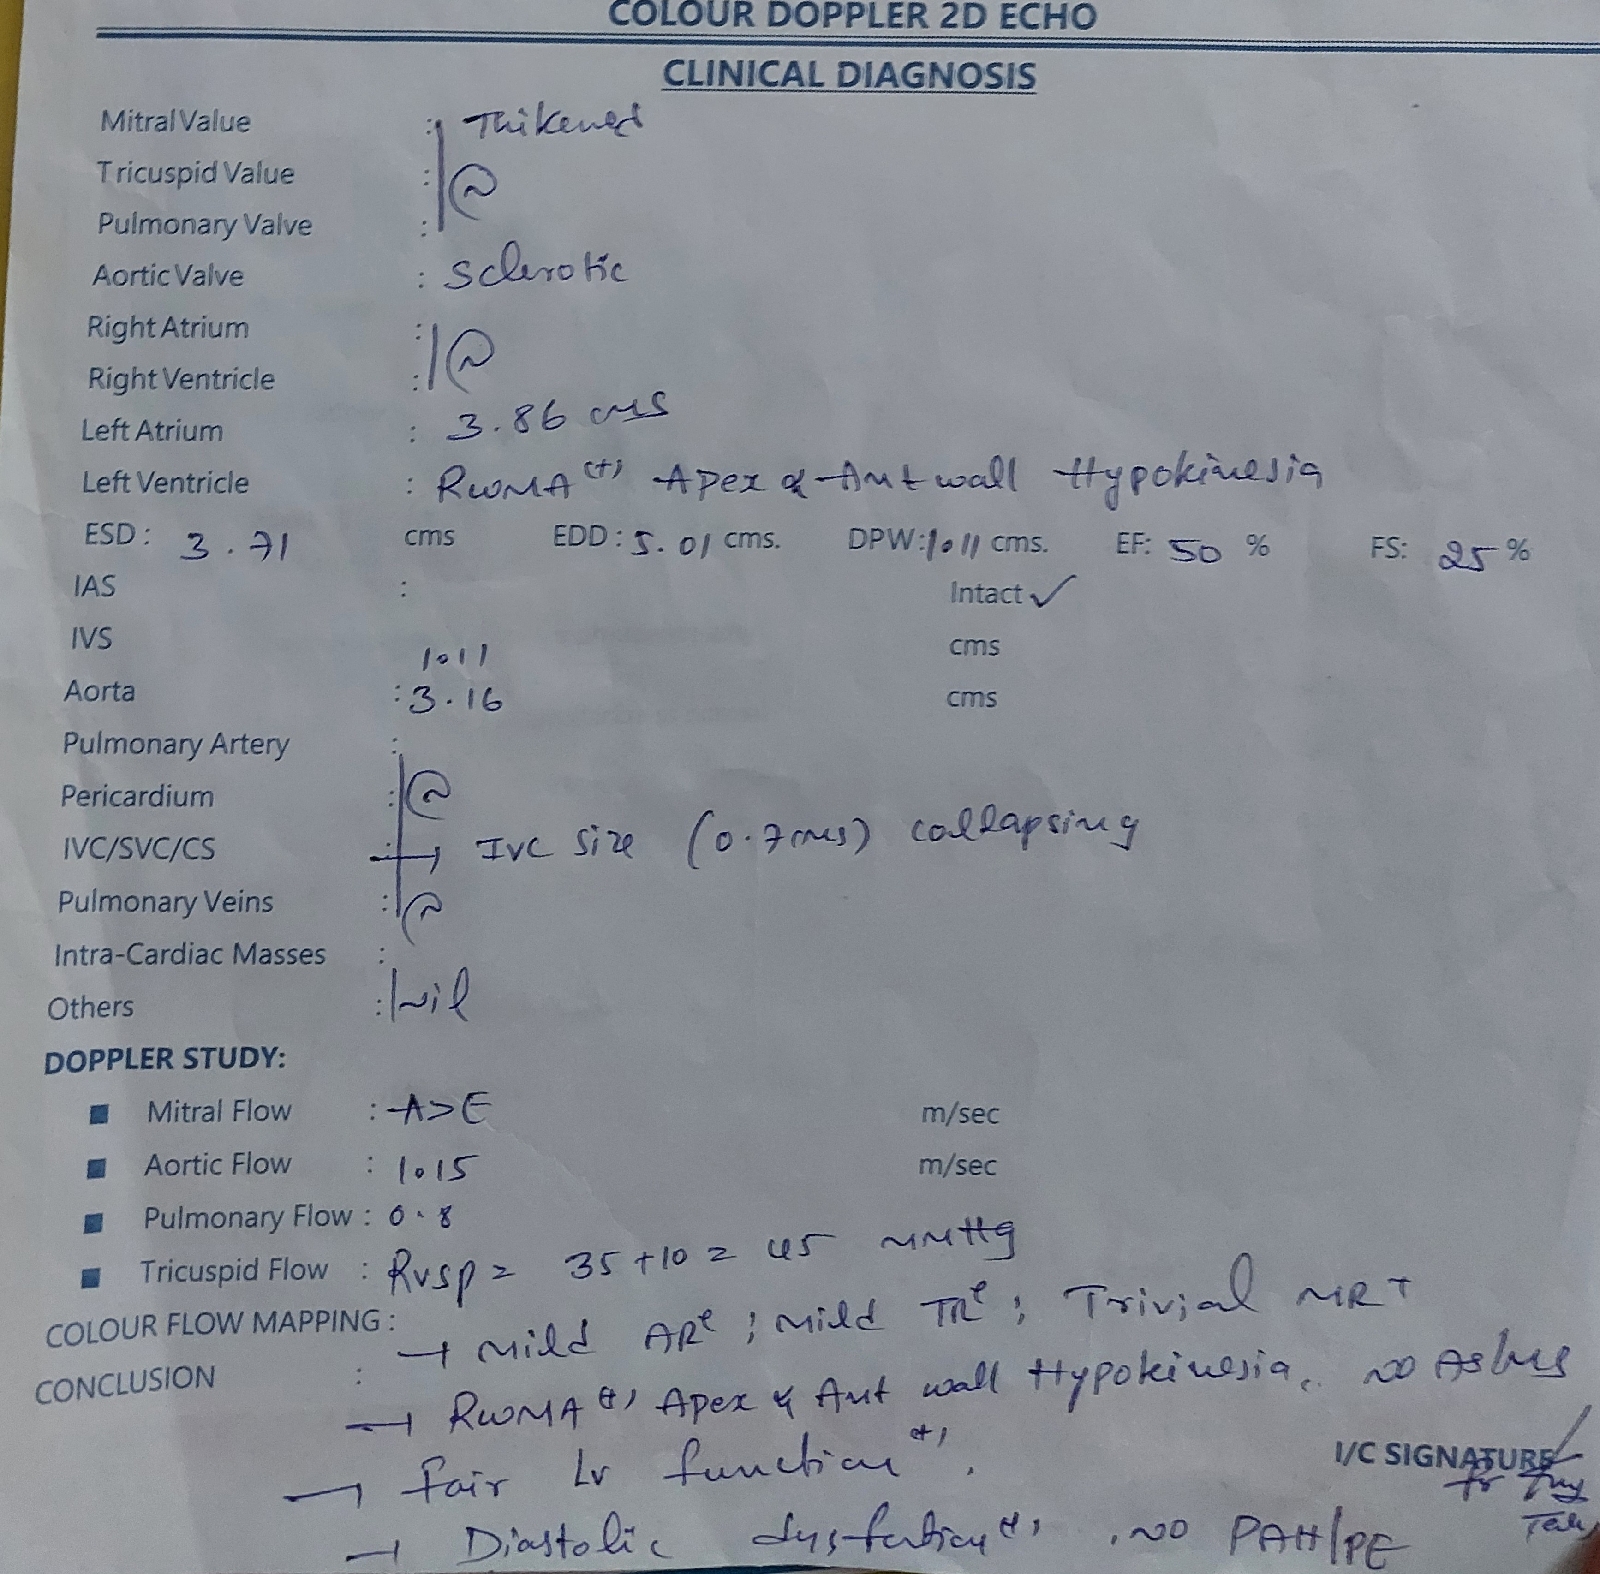 COLOUR DOPPLER 2D ECHO
CLINICAL DIAGNOSIS
Mitral Value : Thikened
Tricuspid Value : (N)
Pulmonary Valve :
Aortic Valve : Sclerotic
Right Atrium : (N)
Right Ventricle :
Left Atrium : 3.86 cms
Left Ventricle : RWMA (+) Apex & Ant wall Hypokinesia
ESD : 3.71 cms EDD : 5.01 cms. DPW : 1.11 cms. EF: 50 % FS: 25 %
IAS : Intact ✓
IVS 1.11 cms
Aorta : 3.16 cms
Pulmonary Artery :
Pericardium : (N)
IVC/SVC/CS : → IVC size (0.7cms) collapsing
Pulmonary Veins : (N)
Intra-Cardiac Masses :
Others : Nil
DOPPLER STUDY:
Mitral Flow : A>E m/sec
Aortic Flow : 1.15 m/sec
Pulmonary Flow : 0.8
Tricuspid Flow : RVSP = 35+10 = 45 mmHg
COLOUR FLOW MAPPING : → Mild AR ; Mild TR ; Trivial MR
CONCLUSION : → RWMA (+) Apex & Ant wall Hypokinesia, NO AS/MS
→ Fair LV function (+),
I/C SIGNATURE
→ Diastolic dysfuction (+), NO PAH/PE